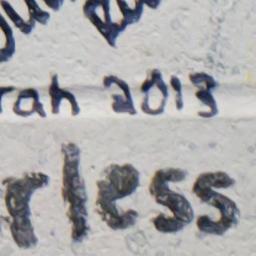 rah 2013
rless